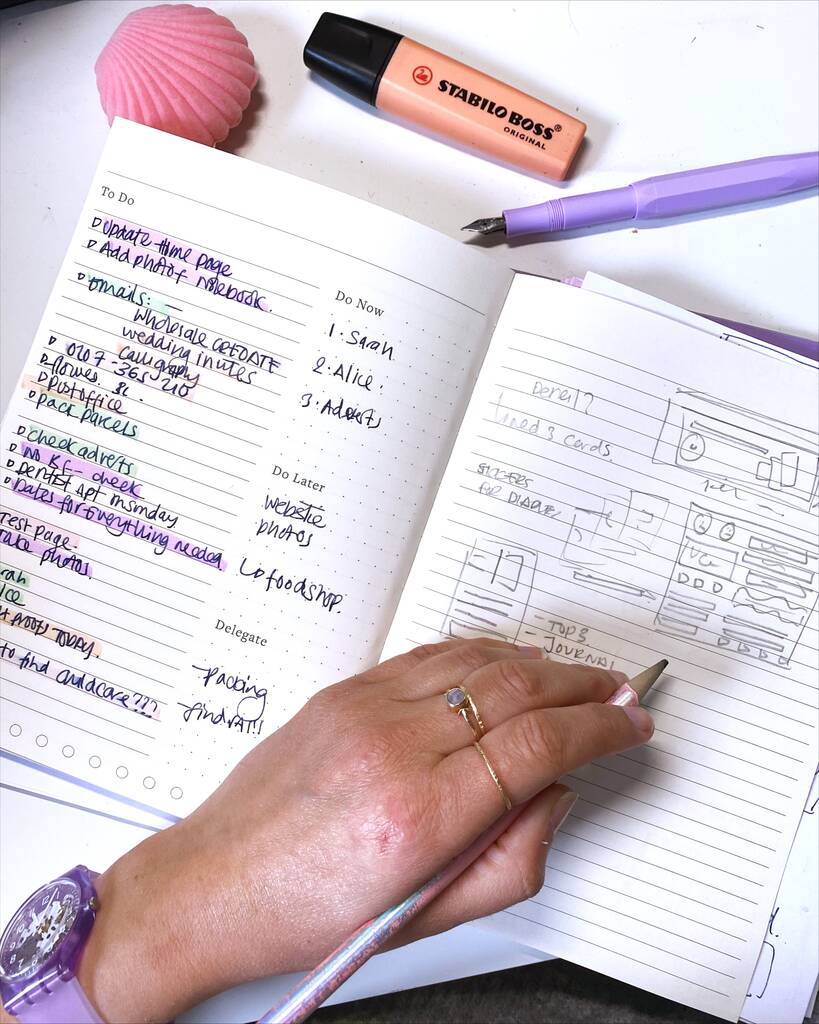 STABILO BOSS®
ORIGINAL
To Do
Update Home page
Add photo of notebook.
emails: —
wholesale CREDATE
wedding invites
calligraphy
0207-365-210
flowers.
post office
pack parcels
check adverts
check
Dentist Apt msmday
Dates for Everything needed
Test page.
Take photos.
TODAY.
to find childcare???
Do Now
1. Sarah
2. Alice.
3. Adverts
Do Later
website
photos
food shop.
Delegate
- Packing
- find VAT!!
Lined 3 cards.
STICKERS
FOR
- TOP 3
- JOURNAL